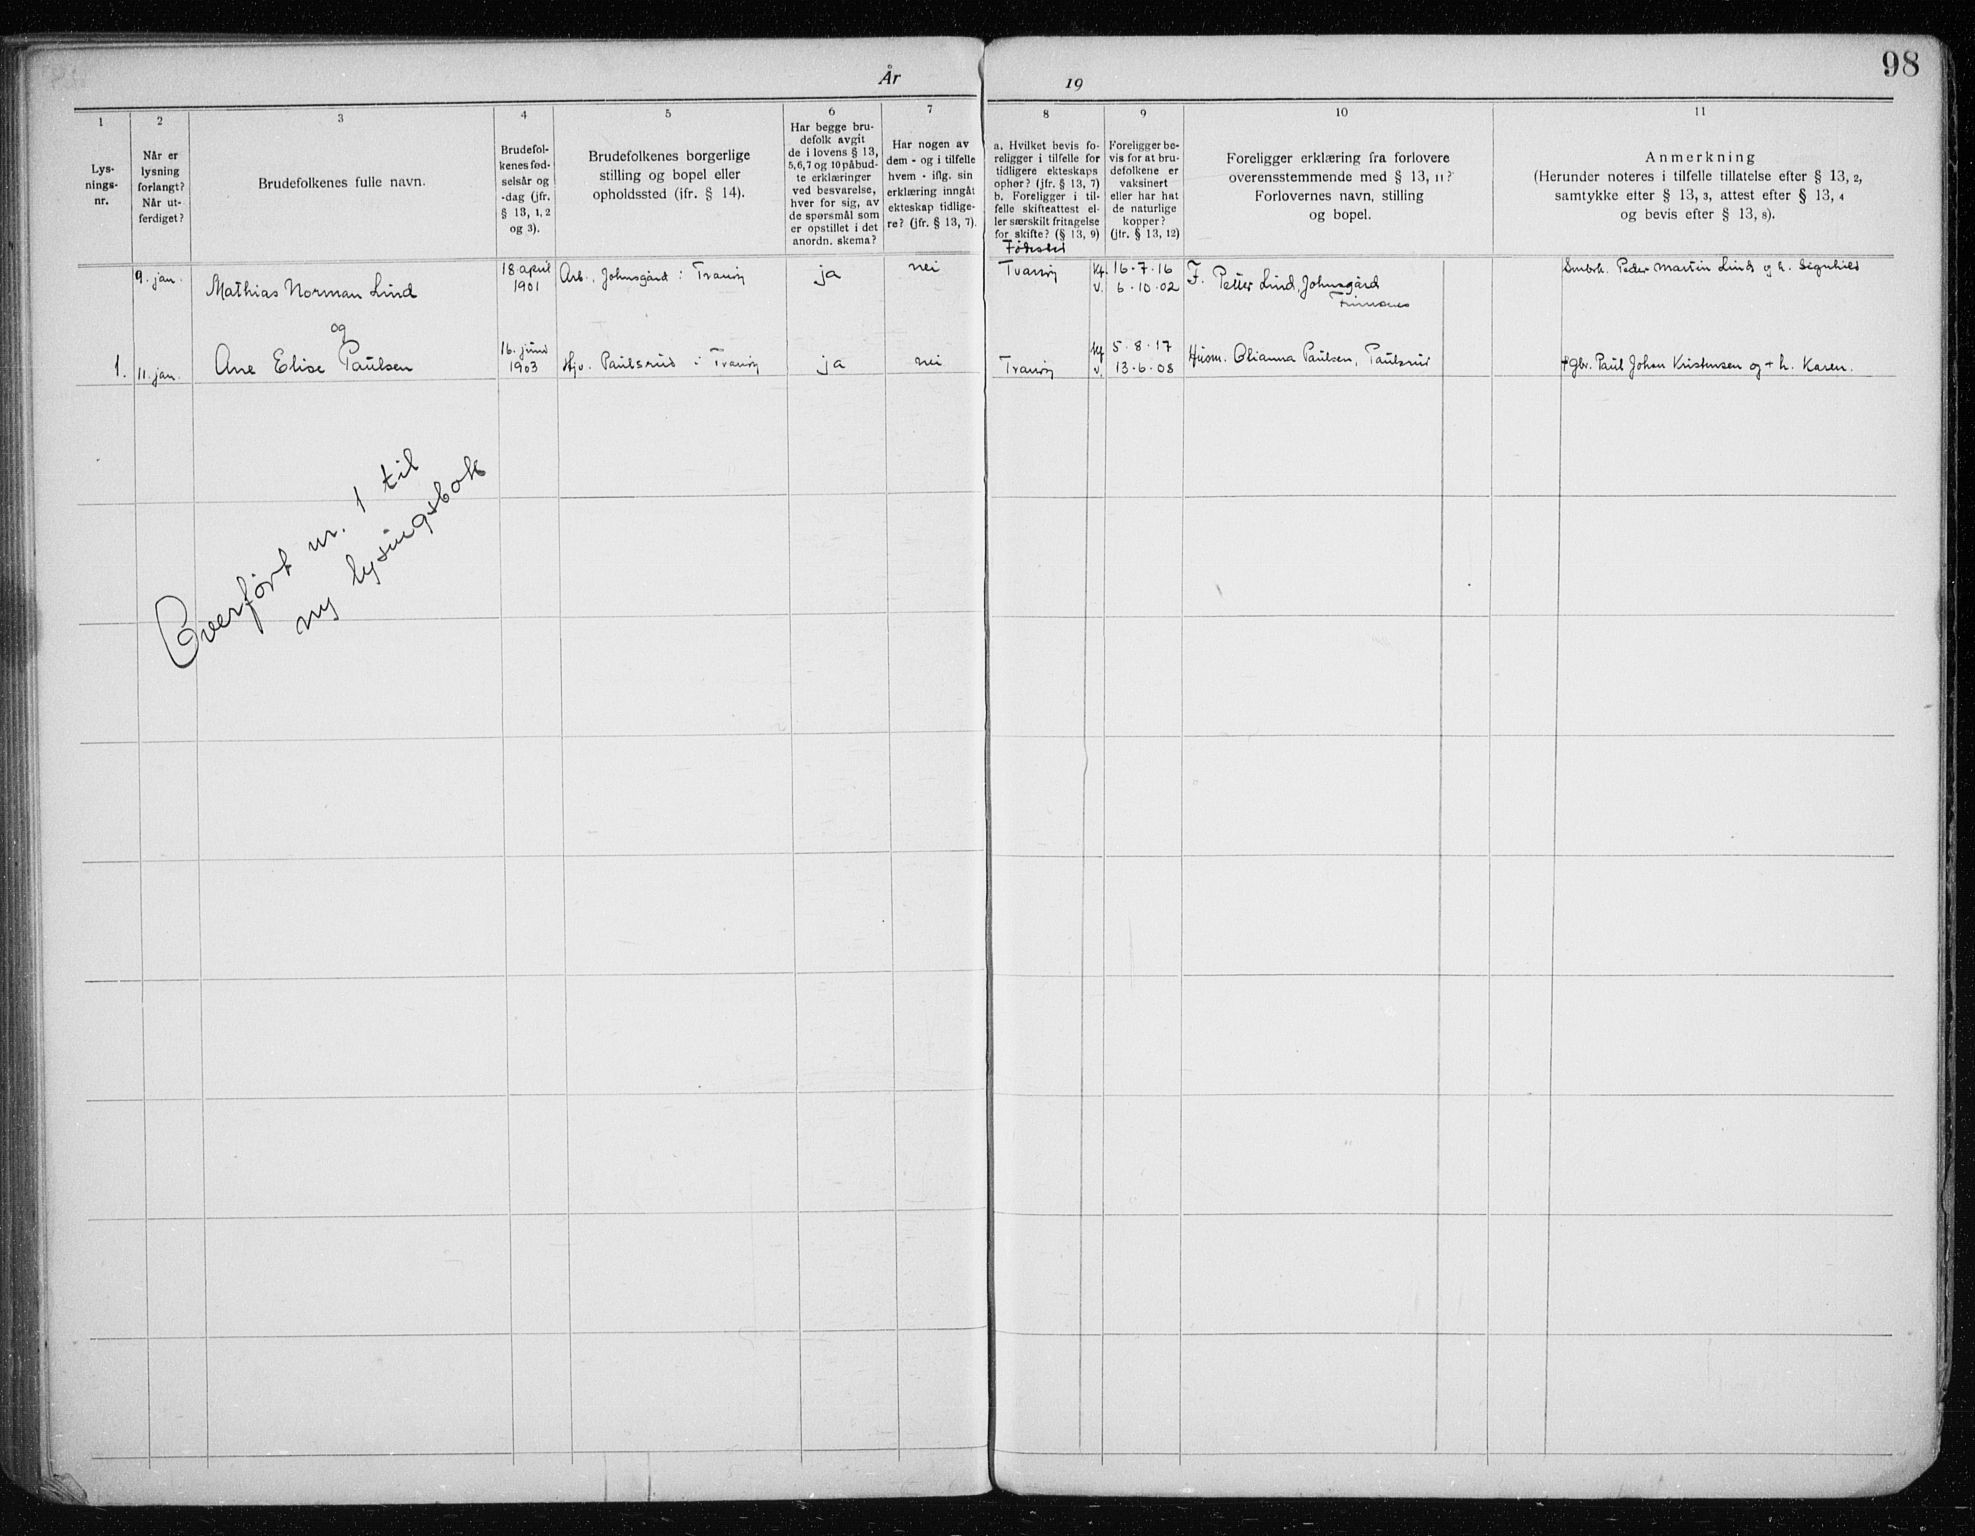 98
År 19
1
2
3
4
5
6
7
8
9
10
11
Lys-
nings-
nr.
Når er
lysning
forlangt?
Når ut-
ferdiget?
Brudefolkenes fulle navn.
Brudefol-
kenes fød-
selsår og
-dag (jfr.
§ 13, 1, 2
og 3).
Brudefolkenes borgerlige
stilling og bopel eller
opholdssted (ifr. § 14).
Har begge bru-
defolk avgit
de i lovens § 13,
5,6,7 og 10 påbud-
te erklæringer
ved besvarelse,
hver for sig, av
de spørsmål som
er opstillet i det
anordn. skema?
Har nogen av
dem - og i tilfelle
hvem - iflg. sin
erklæring inngåt
ekteskap tidlige-
re? (jfr. § 13, 7).
a. Hvilket bevis fo-
religger i tilfelle for
tidligere ekteskaps
ophør? (jfr. § 13, 7)
b. Foreligger i til-
felle skifteattest el-
ler særskilt fritagelse
for skifte? (§ 13, 9)
Fødested
Foreligger be-
vis for at bru-
defolkene er
vaksinert
eller har hat
de naturlige
kopper?
(jfr. § 13, 12)
Foreligger erklæring fra forlovere
overensstemmende med § 13, 11?
Forlovernes navn, stilling
og bopel.
Anmerkning
(Herunder noteres i tilfelle tillatelse efter § 13, 2,
samtykke efter § 13, 3, attest efter § 13, 4
og bevis efter § 13, 8).
9. jan.
Mathias Norman Lind
18. april
1901
Arb., Johnsgård i Tranøy
ja
nei
Tranøy
Kf. 16-7-16
v. 6-10-02
F. Petter Lind, Johnsgård
Finnsnes
Smbrk. Peder Martin Lind og h. Signhild
og
1. 11. jan.
Ane Elise Paulsen
16. juni
1903
Hjv. Paulsrud i Tranøy
ja
nei
Tranøy
Kf 5-8-17
v. 13-6-08
Husm. Olianna Paulsen, Paulsrud
+ gbr. Paul Johan Kristensen og + h. Karen.
Overført nr. 1 til
ny lysingsbok